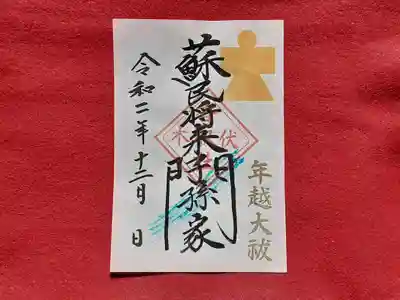 年越大祓
蘇民将来子孫家門
伏
木
令和二年十二月 日